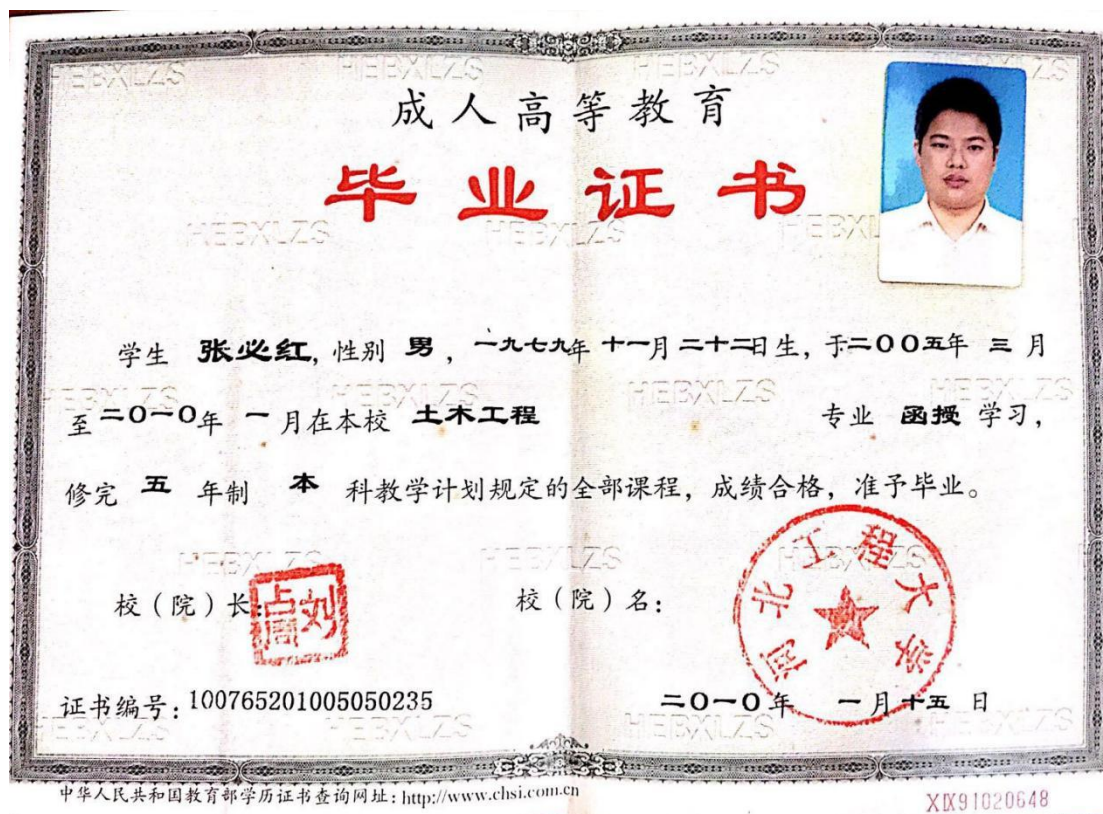 成人高等教育
毕业证书
学生 张必红, 性别 男 , 一九七九年 十一月 二十二日生, 于二〇〇五年 三 月
至二〇一〇年 一 月在本校 土木工程 专业 函授 学习,
修完 五 年制 本 科教学计划规定的全部课程, 成绩合格, 准予毕业。
校(院)长: 刘占周
校(院)名: 河北工程大学
证书编号: 100765201005050235
二〇一〇年 一月十五日
中华人民共和国教育部学历证书查询网址: http://www.chsi.com.cn
XIX91020648
HEBXLZS